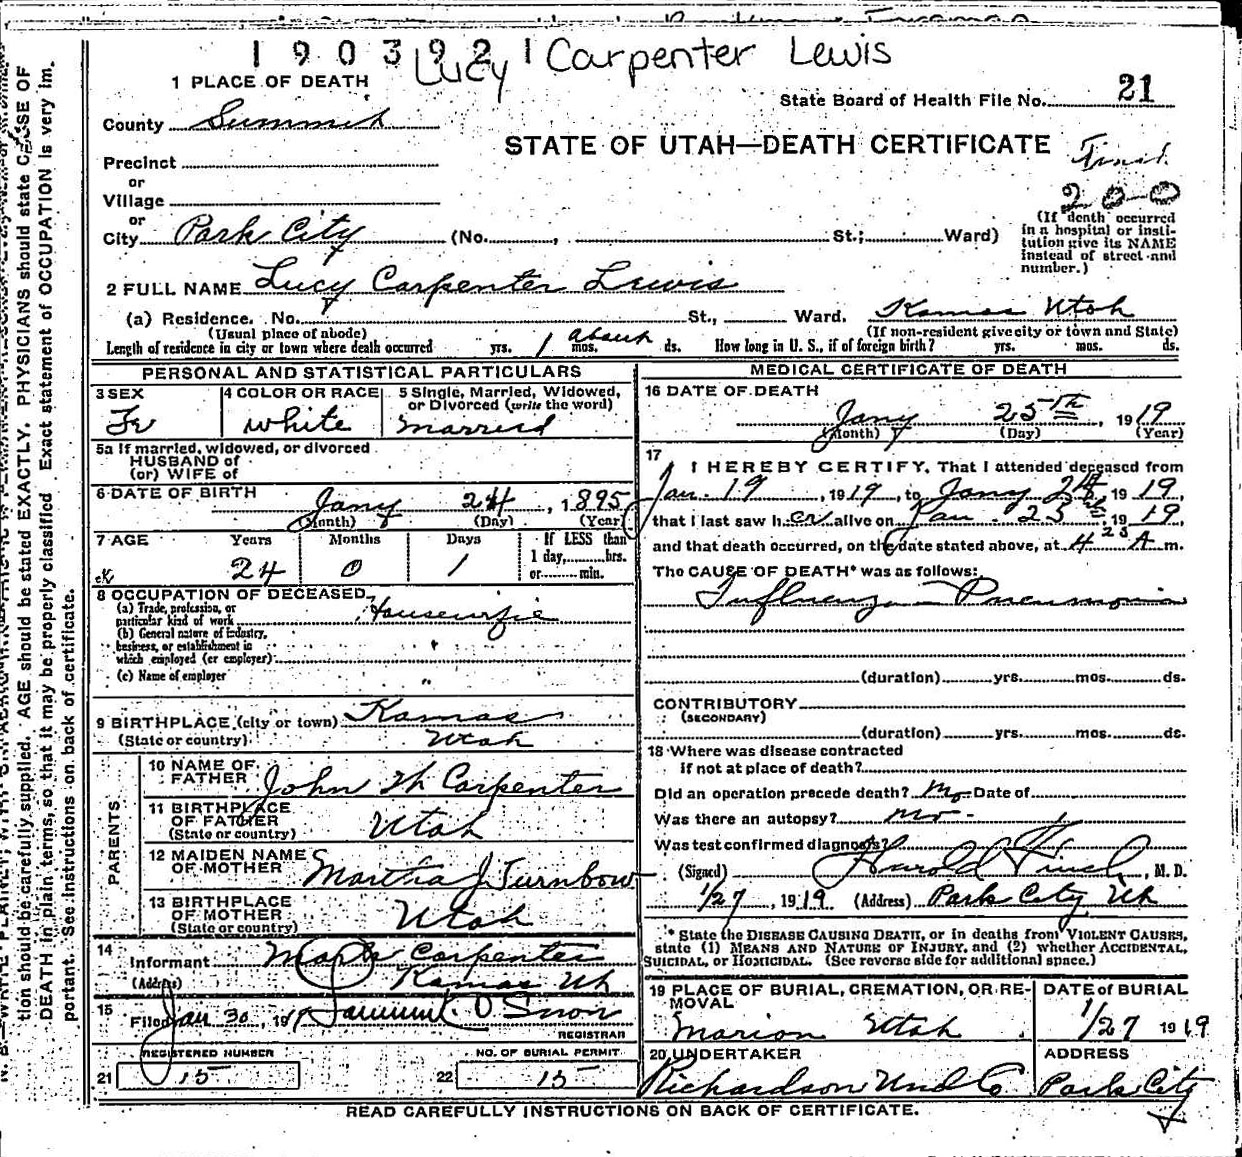 1903921
Lucy Carpenter Lewis
1 PLACE OF DEATH
State Board of Health File No. 21
County Summit
STATE OF UTAH—DEATH CERTIFICATE
200
Precinct
or
Village
or
City Park City (No. , St.; Ward)
(If death occurred in a hospital or institution give its NAME instead of street and number.)
2 FULL NAME Lucy Carpenter Lewis
(a) Residence. No. St., Ward. Kamas Utah
(Usual place of abode) (If non-resident give city or town and State)
Length of residence in city or town where death occurred yrs. 1 mos. about ds. How long in U. S., if of foreign birth? yrs. mos. ds.
PERSONAL AND STATISTICAL PARTICULARS
3 SEX Fe
4 COLOR OR RACE White
5 Single, Married, Widowed, or Divorced (write the word) Married
5a If married, widowed, or divorced
HUSBAND of
(or) WIFE of
6 DATE OF BIRTH Jany 24, 1895
(Month) (Day) (Year)
7 AGE Years Months Days If LESS than
1 day, hrs.
or min.
24 0 1
8 OCCUPATION OF DECEASED
(a) Trade, profession, or
particular kind of work Housewife
(b) General nature of industry,
business, or establishment in
which employed (or employer)
(c) Name of employer "
9 BIRTHPLACE (city or town) Kamas
(State or country) Utah
PARENTS
10 NAME OF
FATHER John W Carpenter
11 BIRTHPLACE
OF FATHER
(State or country) Utah
12 MAIDEN NAME
OF MOTHER Martha J Turnbow
13 BIRTHPLACE
OF MOTHER
(State or country) Utah
14
Informant Mark Carpenter
(Address) Kamas Ut
15
Filed Jan 30, 1919
REGISTRAR
REGISTERED NUMBER
21 15
NO. OF BURIAL PERMIT
22 15
MEDICAL CERTIFICATE OF DEATH
16 DATE OF DEATH
Jany 25th 1919
(Month) (Day) (Year)
17
I HEREBY CERTIFY, That I attended deceased from
Jan. 19, 1919, to Jany 24, 1919,
that I last saw her alive on Jan. 25, 1919
and that death occurred, on the date stated above, at 4 25 A m.
The CAUSE OF DEATH* was as follows:
Influenza - Pneumonia
(duration) yrs. mos. ds.
CONTRIBUTORY
(SECONDARY)
(duration) yrs. mos. ds.
18 Where was disease contracted
if not at place of death?
Did an operation precede death? No Date of
Was there an autopsy? no -
Was test confirmed diagnosis?
(Signed) Harold Finch, M. D.
1/27, 1919 (Address) Park City Ut
* State the DISEASE CAUSING DEATH, or in deaths from VIOLENT CAUSES,
state (1) MEANS AND NATURE OF INJURY, and (2) whether ACCIDENTAL,
SUICIDAL, or HOMICIDAL. (See reverse side for additional space.)
19 PLACE OF BURIAL, CREMATION, OR RE-
MOVAL
Marion Utah
DATE of BURIAL
1/27 1919
20 UNDERTAKER
Richardson Und Co
ADDRESS
Park City
READ CAREFULLY INSTRUCTIONS ON BACK OF CERTIFICATE.
tion should be carefully supplied. AGE should be stated EXACTLY. PHYSICIANS should state CAUSE OF
DEATH in plain terms, so that it may be properly classified. Exact statement of OCCUPATION is very im-
portant. See instructions on back of certificate.